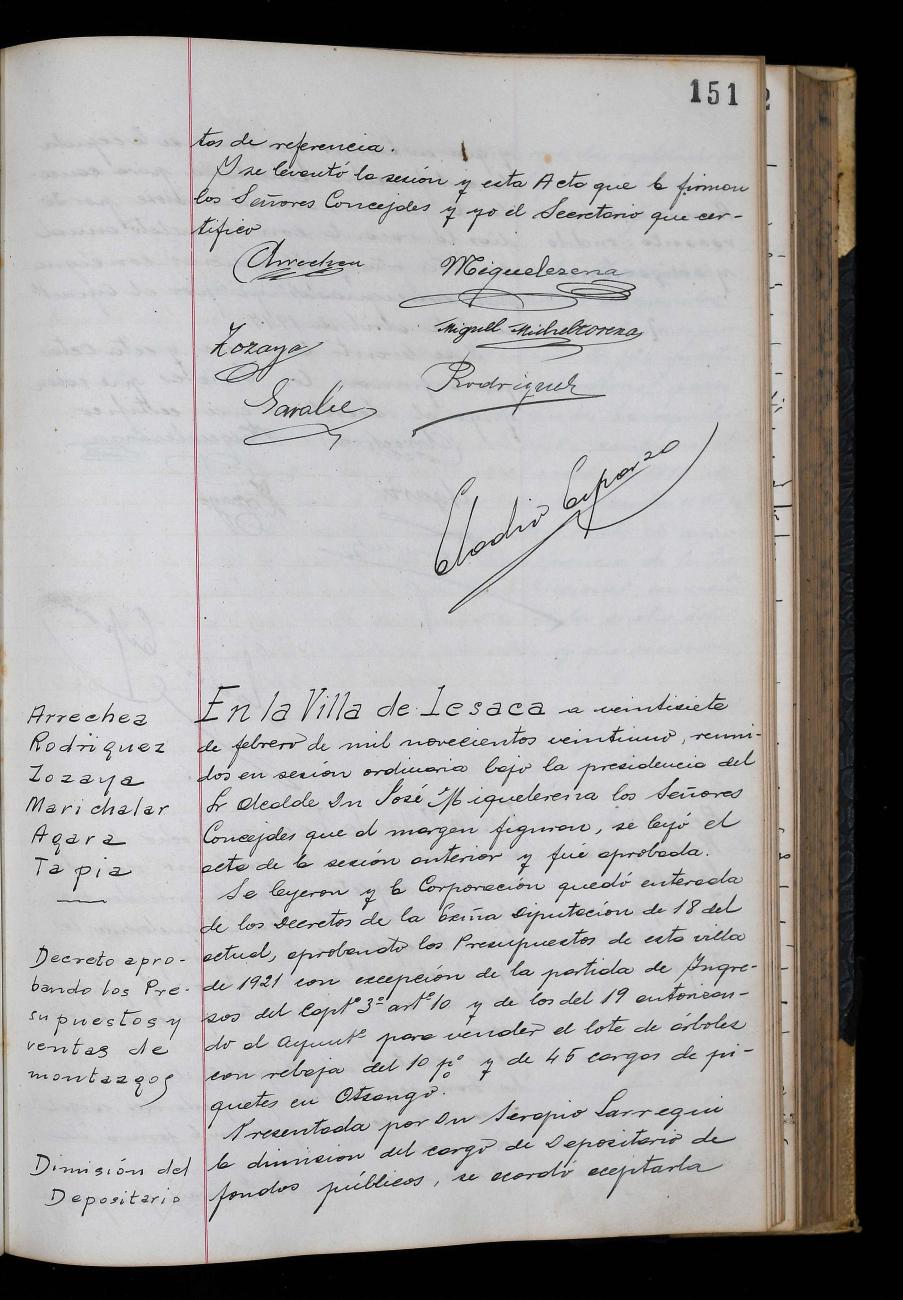 151
tos de referencia.
Y se levantó la sesión y esta Acta que la firman
los Señores Concejales y yo el Secretario que cer-
tifico
Arrechea
Miguelezena
Miguel Micheltorena
Zozaya
Rodriguez
Eladio Esparza
Arrechea
Rodriguez
Zozaya
Marichalar
Agara
Tapia
En la Villa de Lesaca a veintisiete
de febrero de mil novecientos veintiuno, reuni-
dos en sesión ordinaria bajo la presidencia del
Sr Alcalde Dn José Miguelerena los Señores
Concejales que al margen figuran, se leyó el
acta de la sesión anterior y fué aprobada.
Se leyeron y la Corporación quedó enterada
de los Decretos de la Exma Diputación de 18 del
actual, aprobando los Presupuestos de esta villa
de 1921 con excepción de la partida de Ingre-
sos del Captº 3º artº 10 y de los del 19 autorizan-
do al Ayuntº para vender el lote de árboles
con rebaja del 10 pº y de 45 cargas de pi-
quetes en Otsango.
Decreto apro-
bando los Pre-
supuestos y
ventas de
montazgos
Presentada por Dn Sergio Larregui
la dimision del cargo de Depositario de
fondos públicos, se acordó aceptarla
Dimisión del
Depositario